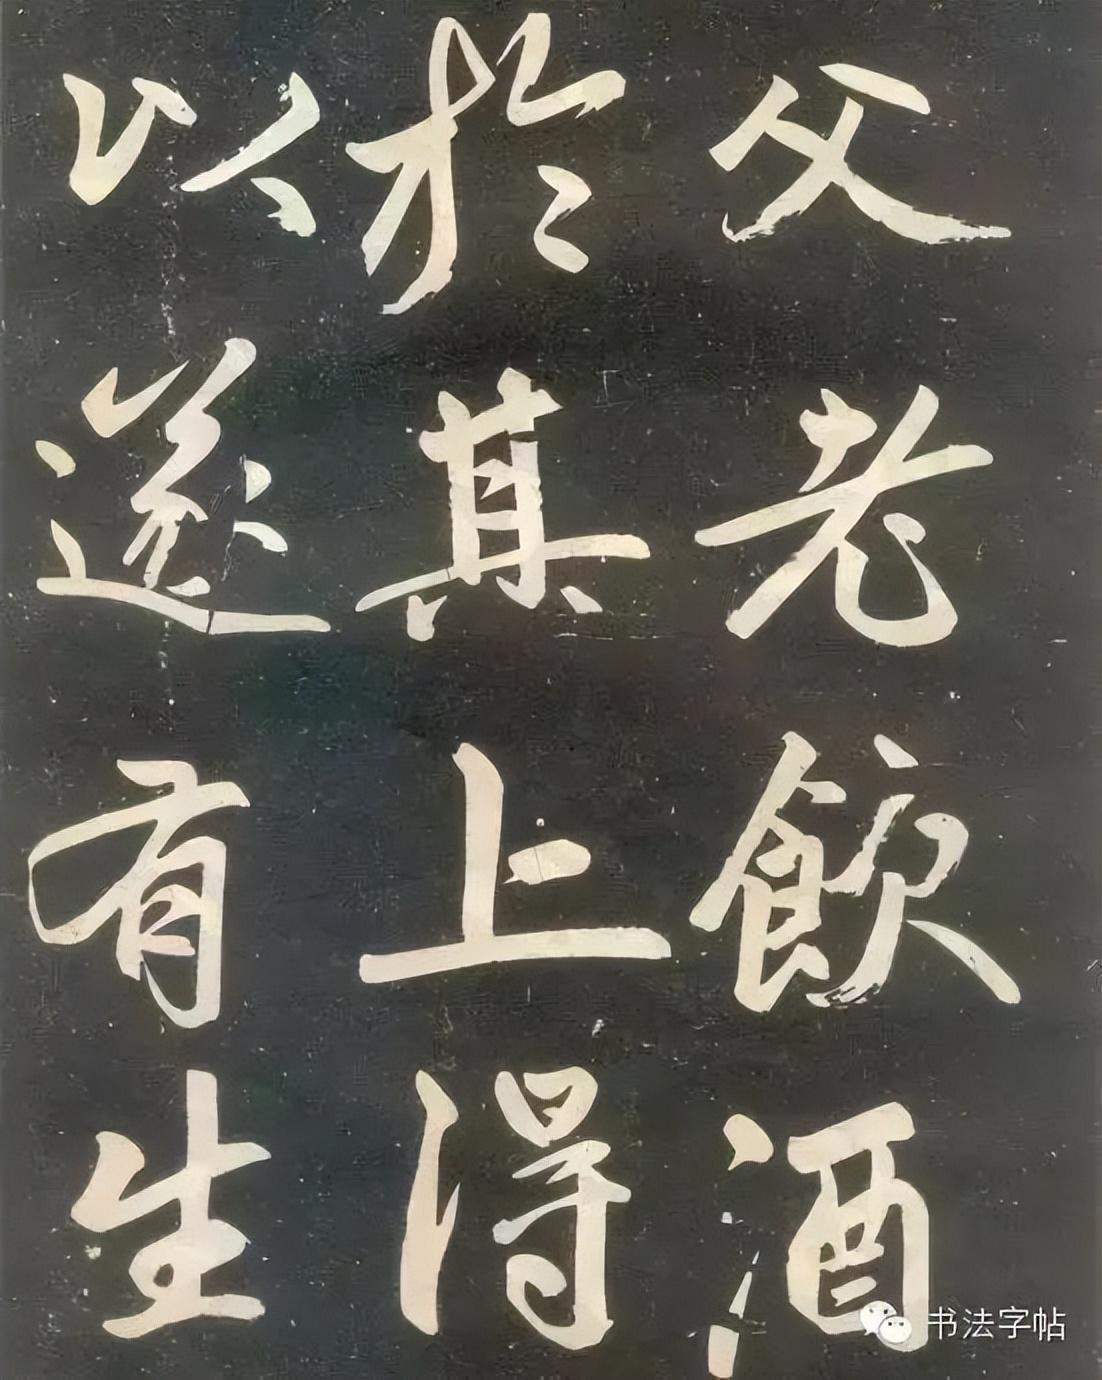 父老飲酒
於其上得
以遂有生
书法字帖